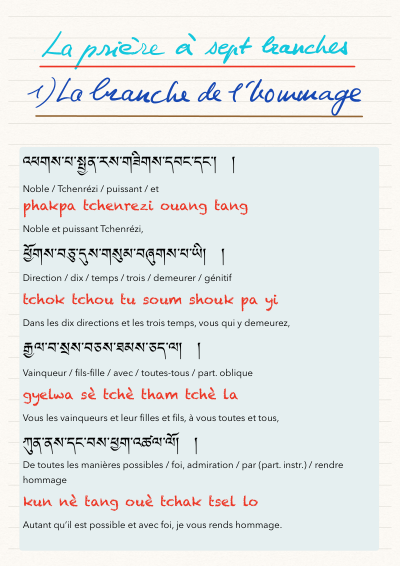 La prière à sept branches
1) La branche de l'hommage
འཕགས་པ་སྤྱན་རས་གཟིགས་དབང་དང་། །
Noble / Tchenrézi / puissant / et
phakpa tchenrezi ouang tang
Noble et puissant Tchenrézi,
ཕྱོགས་བཅུ་དུས་གསུམ་བཞུགས་པ་ཡི། །
Direction / dix / temps / trois / demeurer / génitif
tchok tchou tu soum shouk pa yi
Dans les dix directions et les trois temps, vous qui y demeurez,
རྒྱལ་བ་སྲས་བཅས་ཐམས་ཅད་ལ། །
Vainqueur / fils-fille / avec / toutes-tous / part. oblique
gyelwa sè tchè tham tchè la
Vous les vainqueurs et leur filles et fils, à vous toutes et tous,
ཀུན་ནས་དང་བས་ཕྱག་འཚལ་ལོ། །
De toutes les manières possibles / foi, admiration / par (part. instr.) / rendre
hommage
kun nè tang ouè tchak tsel lo
Autant qu'il est possible et avec foi, je vous rends hommage.